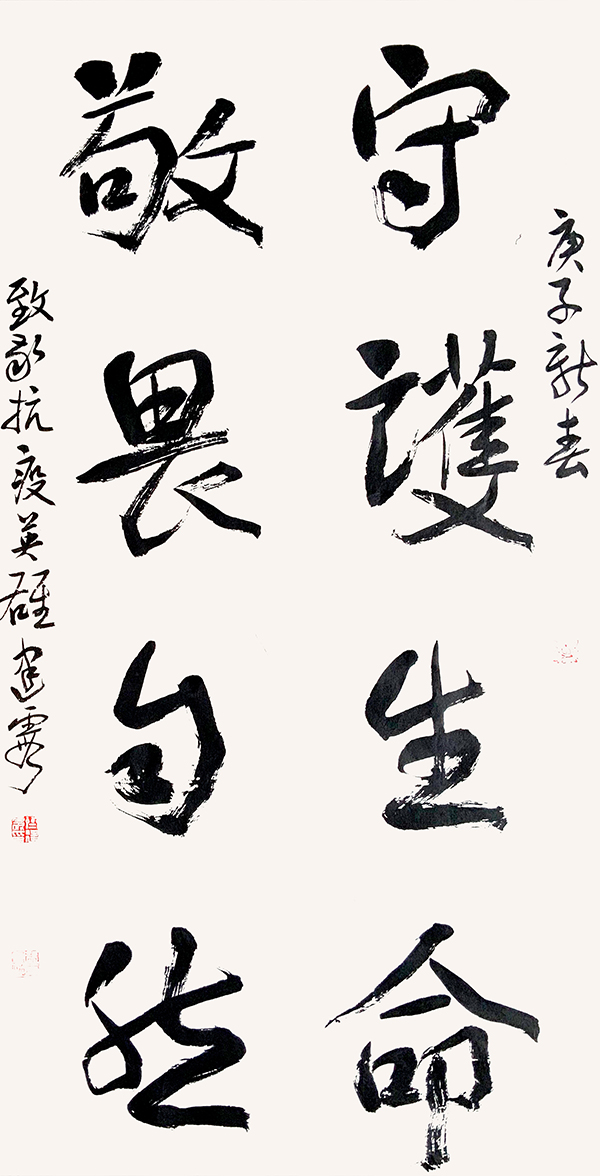 庚子新春
守護生命
敬畏自然
致敬抗疫英雄建霞